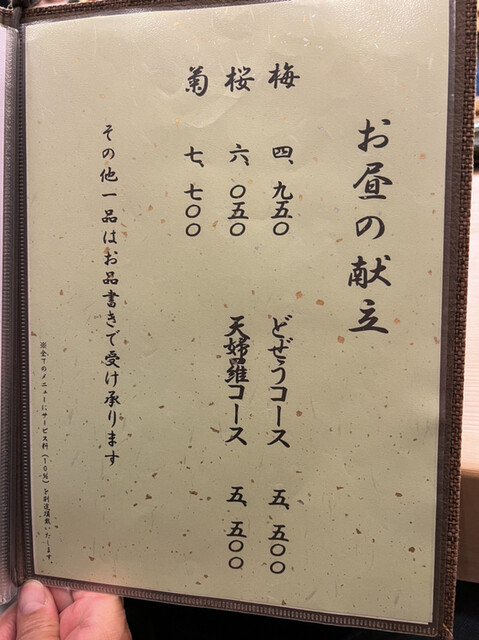 お昼の献立
梅 四、九五〇
桜 六、〇五〇
菊 七、七〇〇
どぜうコース 五、五〇〇
天婦羅コース 五、五〇〇
その他一品はお品書きで受け承ります
※全てのメニューにサービス料(10%)を別途頂戴いたします